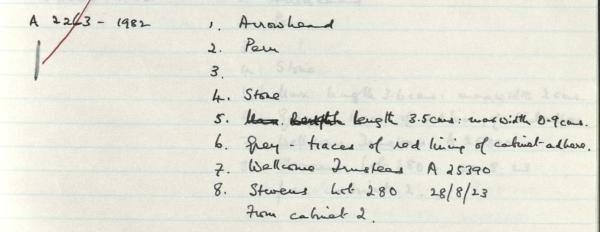 A 2263 - 1982 1. Arrowhead
2. Peru
3.
4. Stone
5. length 3.5cms: maxwidth 0.9cms.
6. Grey - traces of red lining of cabinet adhere.
7. Wellcome Trustees A 25390
8. Stevens Lot 280 28/8/23
From cabinet 2.